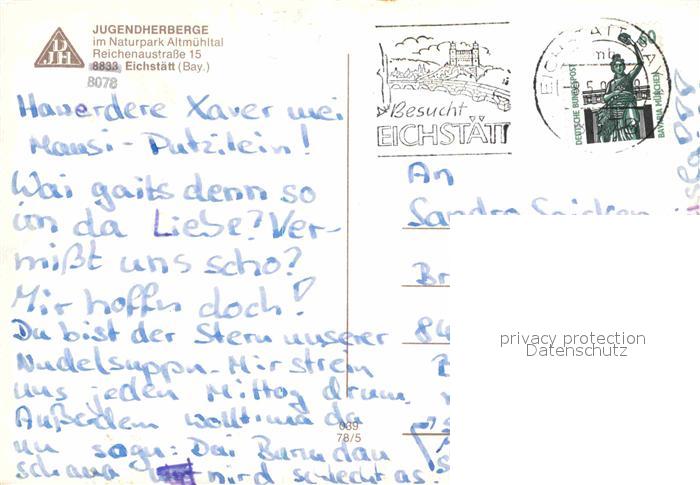 JUGENDHERBERGE
im Naturpark Altmühltal
Reichenaustraße 15
8833 Eichstätt (Bay.)
8078
Hawerdere Xaver mei
Mausi-Putzilein!
Wai gaits denn so
in da Liebe? Ver-
mißt uns scho?
Mir hoffn doch!
Du bist der Stern unserer
Nudelsuppn. Mir strein
uns jeden Mittog drum.
Außerdem wollt ma da
nu sogn: Dei Burm dan
schaua nird schlecht as.
039
78/5
Besucht
EICHSTÄTT
EICHSTÄTT
DEUTSCHE BUNDESPOST
BAVARIA MÜNCHEN
60
An
Sandra
Br
84
privacy protection
Datenschutz